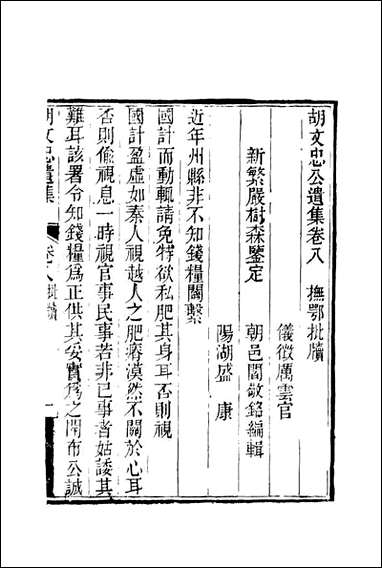 胡文忠公遺集卷八 撫鄂批牘
儀徵厲雲官
新繁嚴樹森鑒定 朝邑閻敬銘編輯
陽湖盛 康
近年州縣非不知錢糧關繫
國計而動輒請免特欲私肥其身耳否則視
國計盈虛如秦人視越人之肥瘠漠然不關於心耳
否則偷視息一時視官事民事若非已事者姑諉其
難耳該署令知錢糧爲正供其妥實爲之開布公誠
胡文忠遺集 卷八 批牘 一